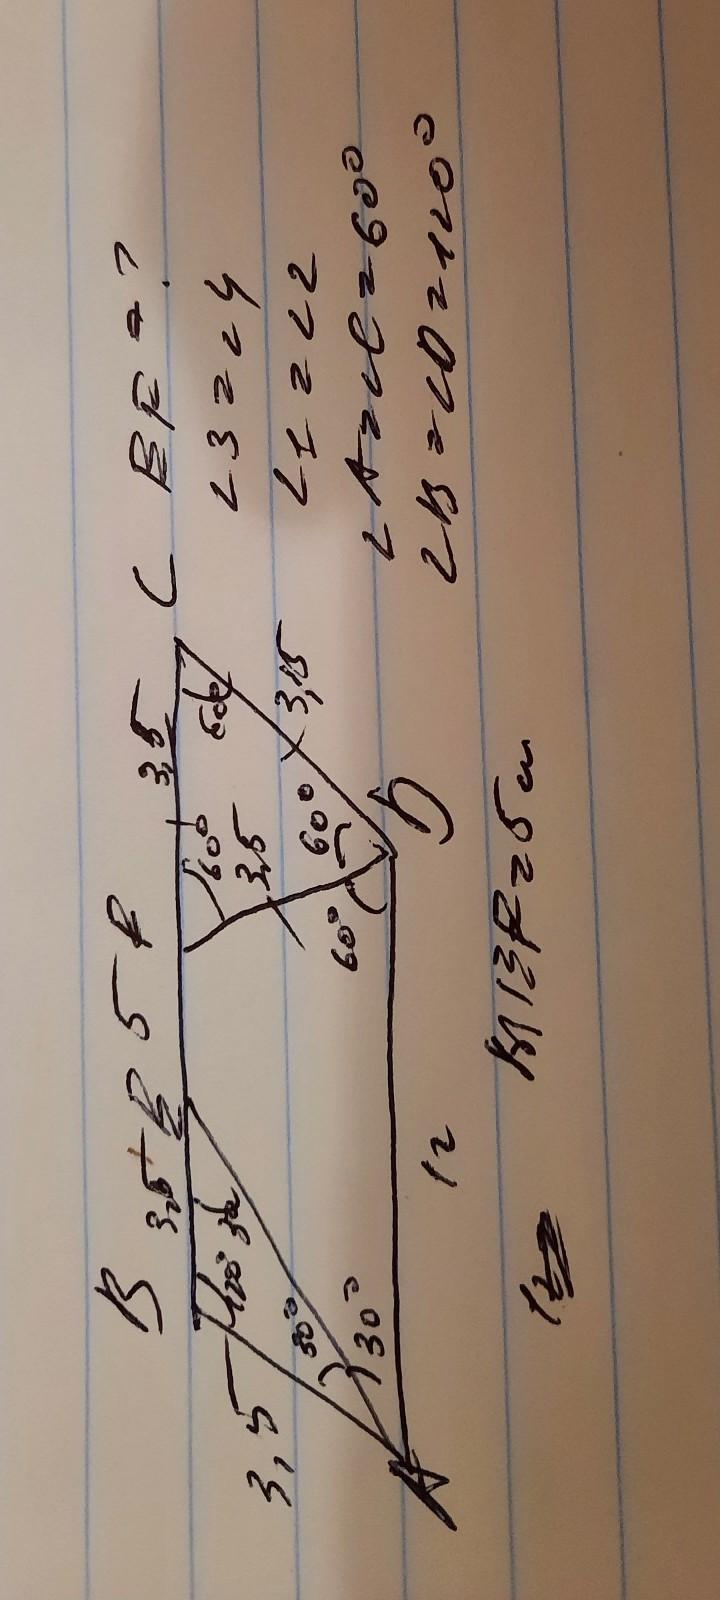 B 3,5 E 5 F 3,5 C EF = ?
3,5 120° 30° 60° 60°
30° 30° 3,5 60° 60° 3,5
A 12 D
∠3 = ∠4
∠1 = ∠2
∠A = ∠C = 60°
∠B = ∠D = 120°
EF = 5 см